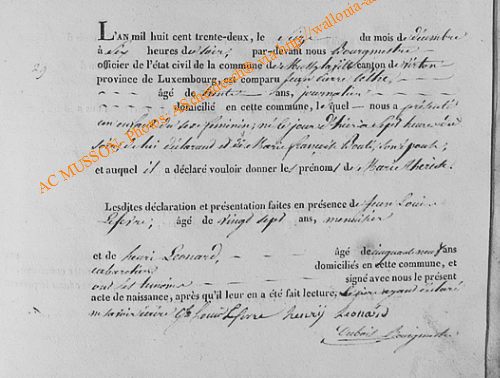 L'AN mil huit cent trente-deux, le seize du mois de décembre
à six heures du soir, par-devant nous Bourgmestre
officier de l'état civil de la commune de canton de Virton
province de Luxembourg, est comparu jean pierre
âgé de trente ans, journalier
29
domicilié en cette commune, lequel nous a présenté
un enfant du sexe féminin, né le jour d'hier à sept heures du
soir, de lui déclarant et de Marie françoise son épouse,
et auquel il a déclaré vouloir donner les prénoms de Marie Therese.
Lesdites déclaration et présentation faites en présence de Jean Louis
Lefevre, âgé de vingt sept ans, menuisier
et de henri Leonard, âgé de cinquante neuf ans
cabaretier domiciliés en cette commune, et
ont été témoins signé avec nous le présent
acte de naissance, après qu'il leur en a été fait lecture, le père ayant déclaré
Louis Lefevre henry Leonard
Dubois Bourgmestre
AC MUSSON, Photos, AS http://wallonia-as